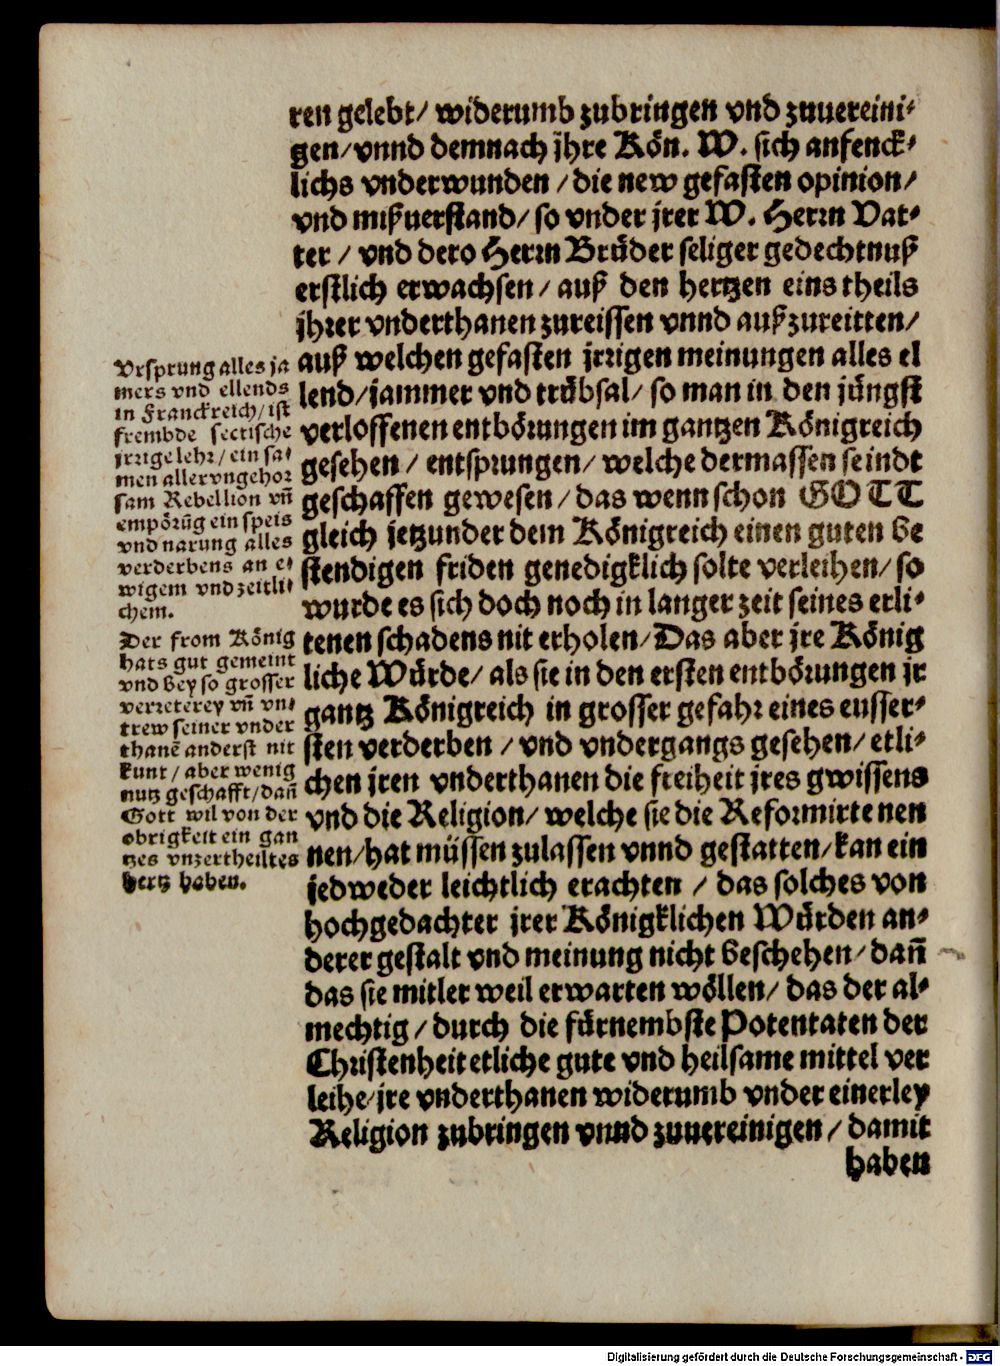 ren gelebt/ widerumb zubringen vnd zuuereini-
gen/ vnnd demnach jhre Kön. W. sich anfenck-
lichs vnderwunden / die new gefasten opinion/
vnd mißuerstand/ so vnder jrer W. Herrn Vat-
ter / vnd dero Herrn Brüder seliger gedechtnuß
erstlich erwachsen/ auß den hertzen eins theils
jhrer vnderthanen zureissen vnnd außzureitten/
auß welchen gefasten jrrigen meinungen alles el
lend/ jammer vnd trübsal/ so man in den jüngst
verloffenen entbörungen im gantzen Königreich
gesehen / entsprungen/ welche dermassen seindt
geschaffen gewesen/ das wenn schon GOTT
gleich jetzunder dem Königreich einen guten be
stendigen friden genedigklich solte verleihen/ so
wurde es sich doch noch in langer zeit seines erli-
tenen schadens nit erholen/ Das aber jre König
liche Würde/ als sie in den ersten entbörungen jr
gantz Königreich in grosser gefahr eines eusser-
sten verderben / vnd vndergangs gesehen/ etli-
chen jren vnderthanen die freiheit jres gwissens
vnd die Religion/ welche sie die Reformirte nen
nen/ hat müssen zulassen vnnd gestatten/ kan ein
jedweder leichtlich erachten / das solches von
hochgedachter jrer Königklichen Würden an-
derer gestalt vnd meinung nicht beschehen/ dañ
das sie mitler weil erwarten wöllen/ das der al-
mechtig / durch die fürnembste Potentaten der
Christenheit etliche gute vnd heilsame mittel ver
leihe/ jre vnderthanen widerumb vnder einerley
Religion zubringen vnnd zuuereinigen / damit
haben
Vrsprung alles ja
mers vnd ellends
in Franckreich/ ist
frembde sectische
jrrige lehr/ ein sa-
men aller vngehor
sam Rebellion vñ
empörũg ein speis
vnd narung alles
verderbens an e-
wigem vnd zeitli-
chem.
Der from König
hats gut gemeint
vnd bey so grosser
verreterey vñ vn-
trew seiner vnder
thanẽ anderst nit
kunt/ aber wenig
nutz geschafft/ dañ
Gott wil von der
obrigkeit ein gan
tzes vnzertheiltes
hertz haben.
Digitalisierung gefördert durch die Deutsche Forschungsgemeinschaft - DFG